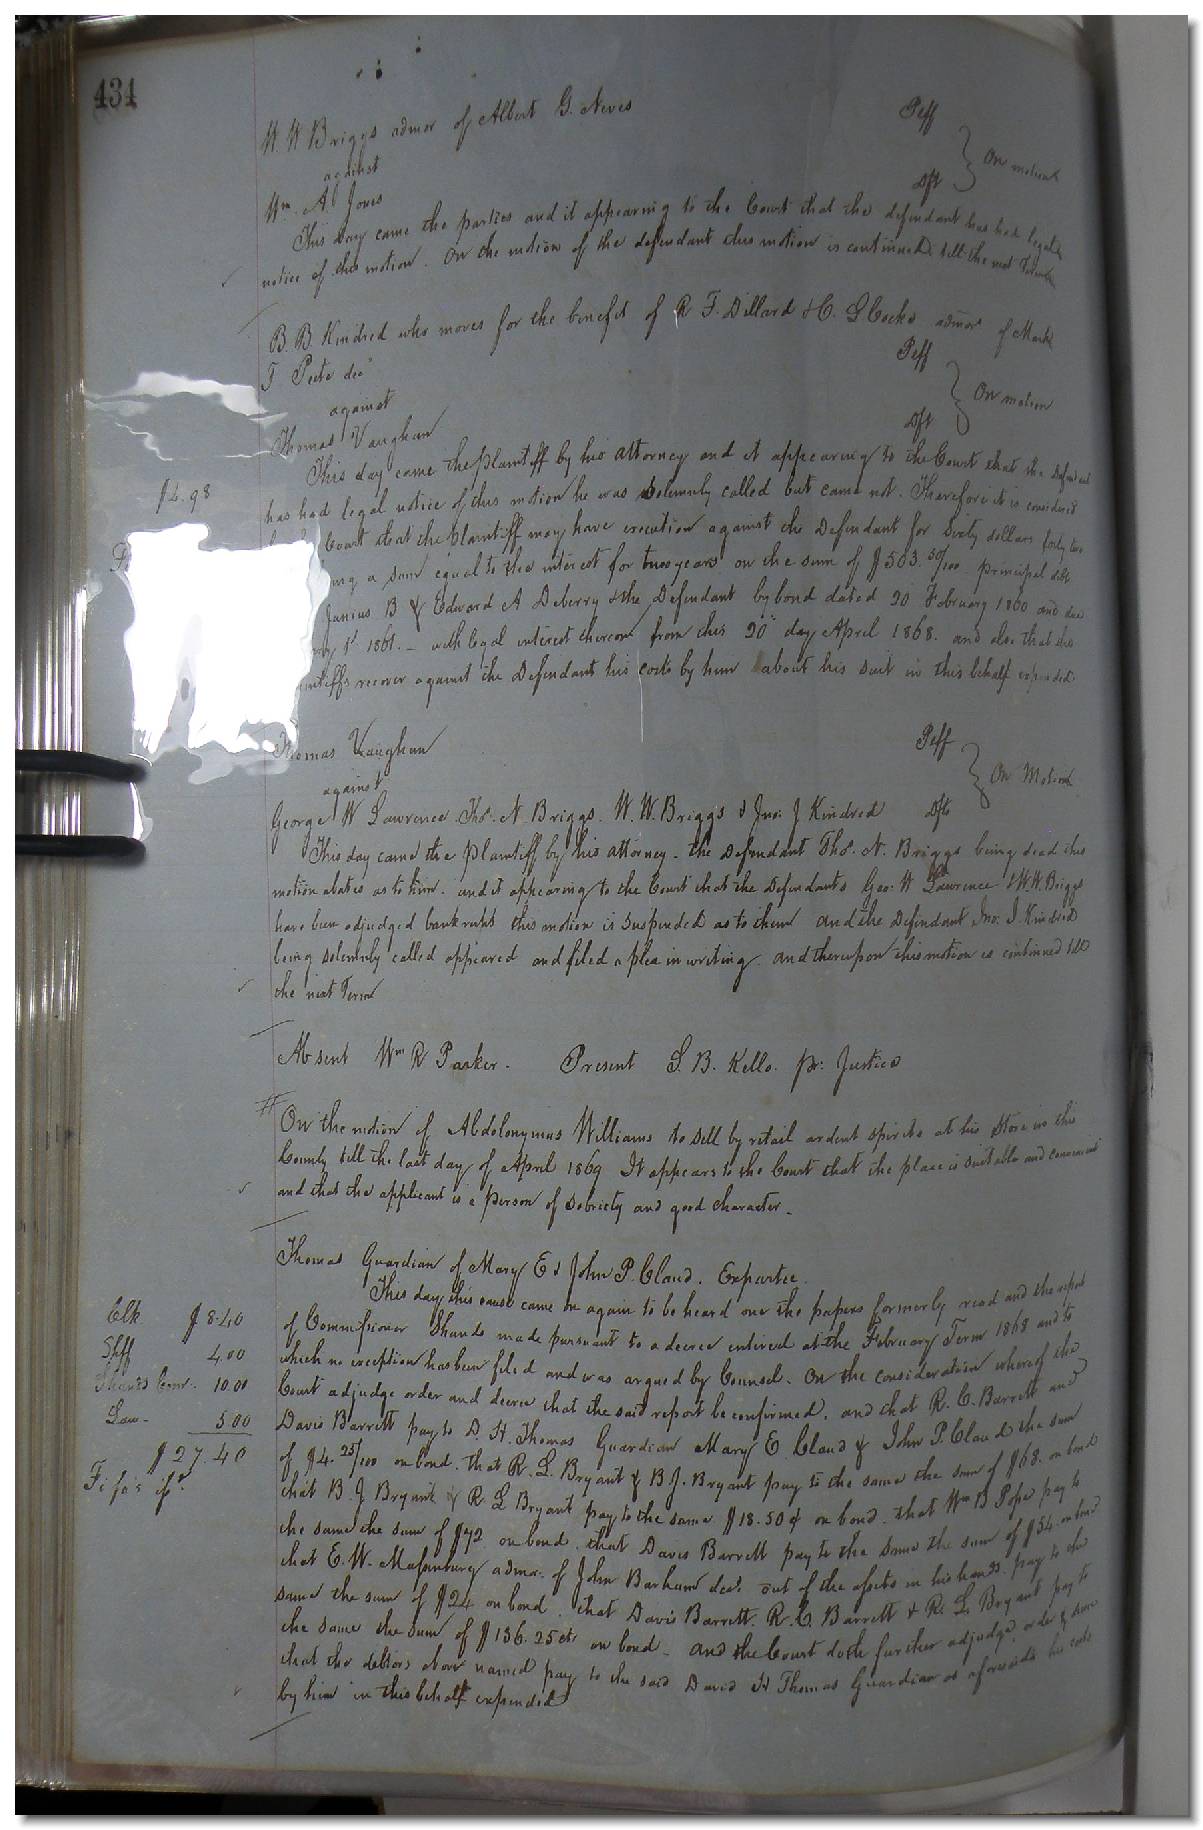 434
W. W Briggs admor of Albert G. Neves Peff
against On motion
Wm. A. Jones Dft
This day came the parties and it appearing to the Court that the defendant has had legal
notice of this motion. On the motion of the defendant this motion is continued till the next Term
B. B. Kindred who moves for the benefit of R F. Dillard & C. S Cocks admors of Mark
T Peete decd Peff
against On motion
Thomas Vaughan Dft
This day came the Plaintiff by his attorney and it appearing to the Court that the Defendant
$4.98
has had legal notice of this motion he was solemnly called but came not. Therefore it is considered
Court that the Plaintiff may have execution against the Defendant for Sixty dollars forty two
a sum equal to the interest for two years on the sum of $503.50/100 principal debt
Junius B & Edward A Deberry & the Defendant by bond dated 20 February 1860 and due
1st 1861. – with legal interest thereon from this 20th day April 1868. and also that the
recover against the Defendant his costs by him about his suit in this behalf expended.
Thomas Vaughan Peff
against On Motion
George W Lawrence Thos. N Briggs. W. W. Briggs & Jno. J Kindred Dfts
This day came the Plaintiff by his attorney – the Defendant Thos. N. Briggs being dead this
motion abates as to him. and it appearing to the Court that the Defendants Geo. W Lawrence & W. W. Briggs
have been adjudged bankrupts this motion is Suspended as to them and the Defendant Jno. J. Kindred
being solemnly called appeared and filed a plea in writing. and thereupon this motion is continued till
the next Term
Absent Wm R Parker. Present S. B. Kello. pr: Justice
On the motion of Abdolonymus Williams to sell by retail ardent spirits at his Store in this
County till the last day of April 1869 It appears to the Court that the place is suitable and convenient
and that the applicant is a person of sobriety and good character –
Thomas Guardian of Mary E & John P. Claud. Expartee
This day this cause came on again to be heard on the papers formerly read and the report
Clk $8.40
of Commissioner Shands made pursuant to a decree entered at the February Term 1868 and to
Shff 4.00
which no exception has been filed and was argued by Counsel. On the consideration whereof the
Shands Comr. 10.00
Court adjudge order and decree that the said report be confirmed. and that R. C. Barrett and
Law – 5.00
Davis Barrett pay to D. H. Thomas Guardian Mary E. Claud & John P. Claud the sum
$27.40
of $4.25/100 on bond. that R. L. Bryant & B J. Bryant pay to the same the sum of $68. on bond
Fi fa's
that B. J Bryant & R L Bryant pay to the same $18.50¢ on bond. that Wm B Pope pay to
the same the sum of $72 on bond. that Davis Barrett pay to the same the sum of $54. on bond
that E. W. Massenburg admor. of John Barham decd. out of the assets in his hands pay to the
same the sum of $24 on bond. that Davis Barrett. R. C. Barrett & R. L. Bryant pay to
the same the sum of $136.25cts on bond – and the Court doth further adjudge, order & decree
that the debtors above named pay to the said David H Thomas Guardian as aforesaid his costs
by him in this behalf expended